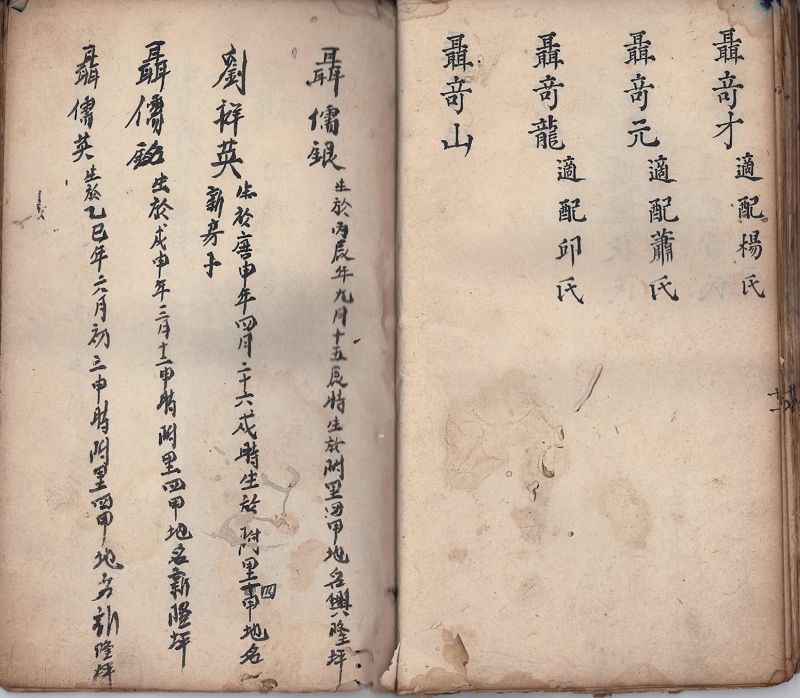 聶竒才適配楊氏
聶竒元適配蕭氏
聶竒龍適配邱氏
聶竒山
聶儒銀生於丙辰年九月十五辰時生於附里四甲地名興隆坪
劉祥英生於庚申年四月二十六戌時生於附里四甲地名
新房卜
聶儒銘生於戊申年三月十二申時附里四甲地名新隆坪
聶儒英生於乙巳年六月初三申時附里四甲地名新隆坪